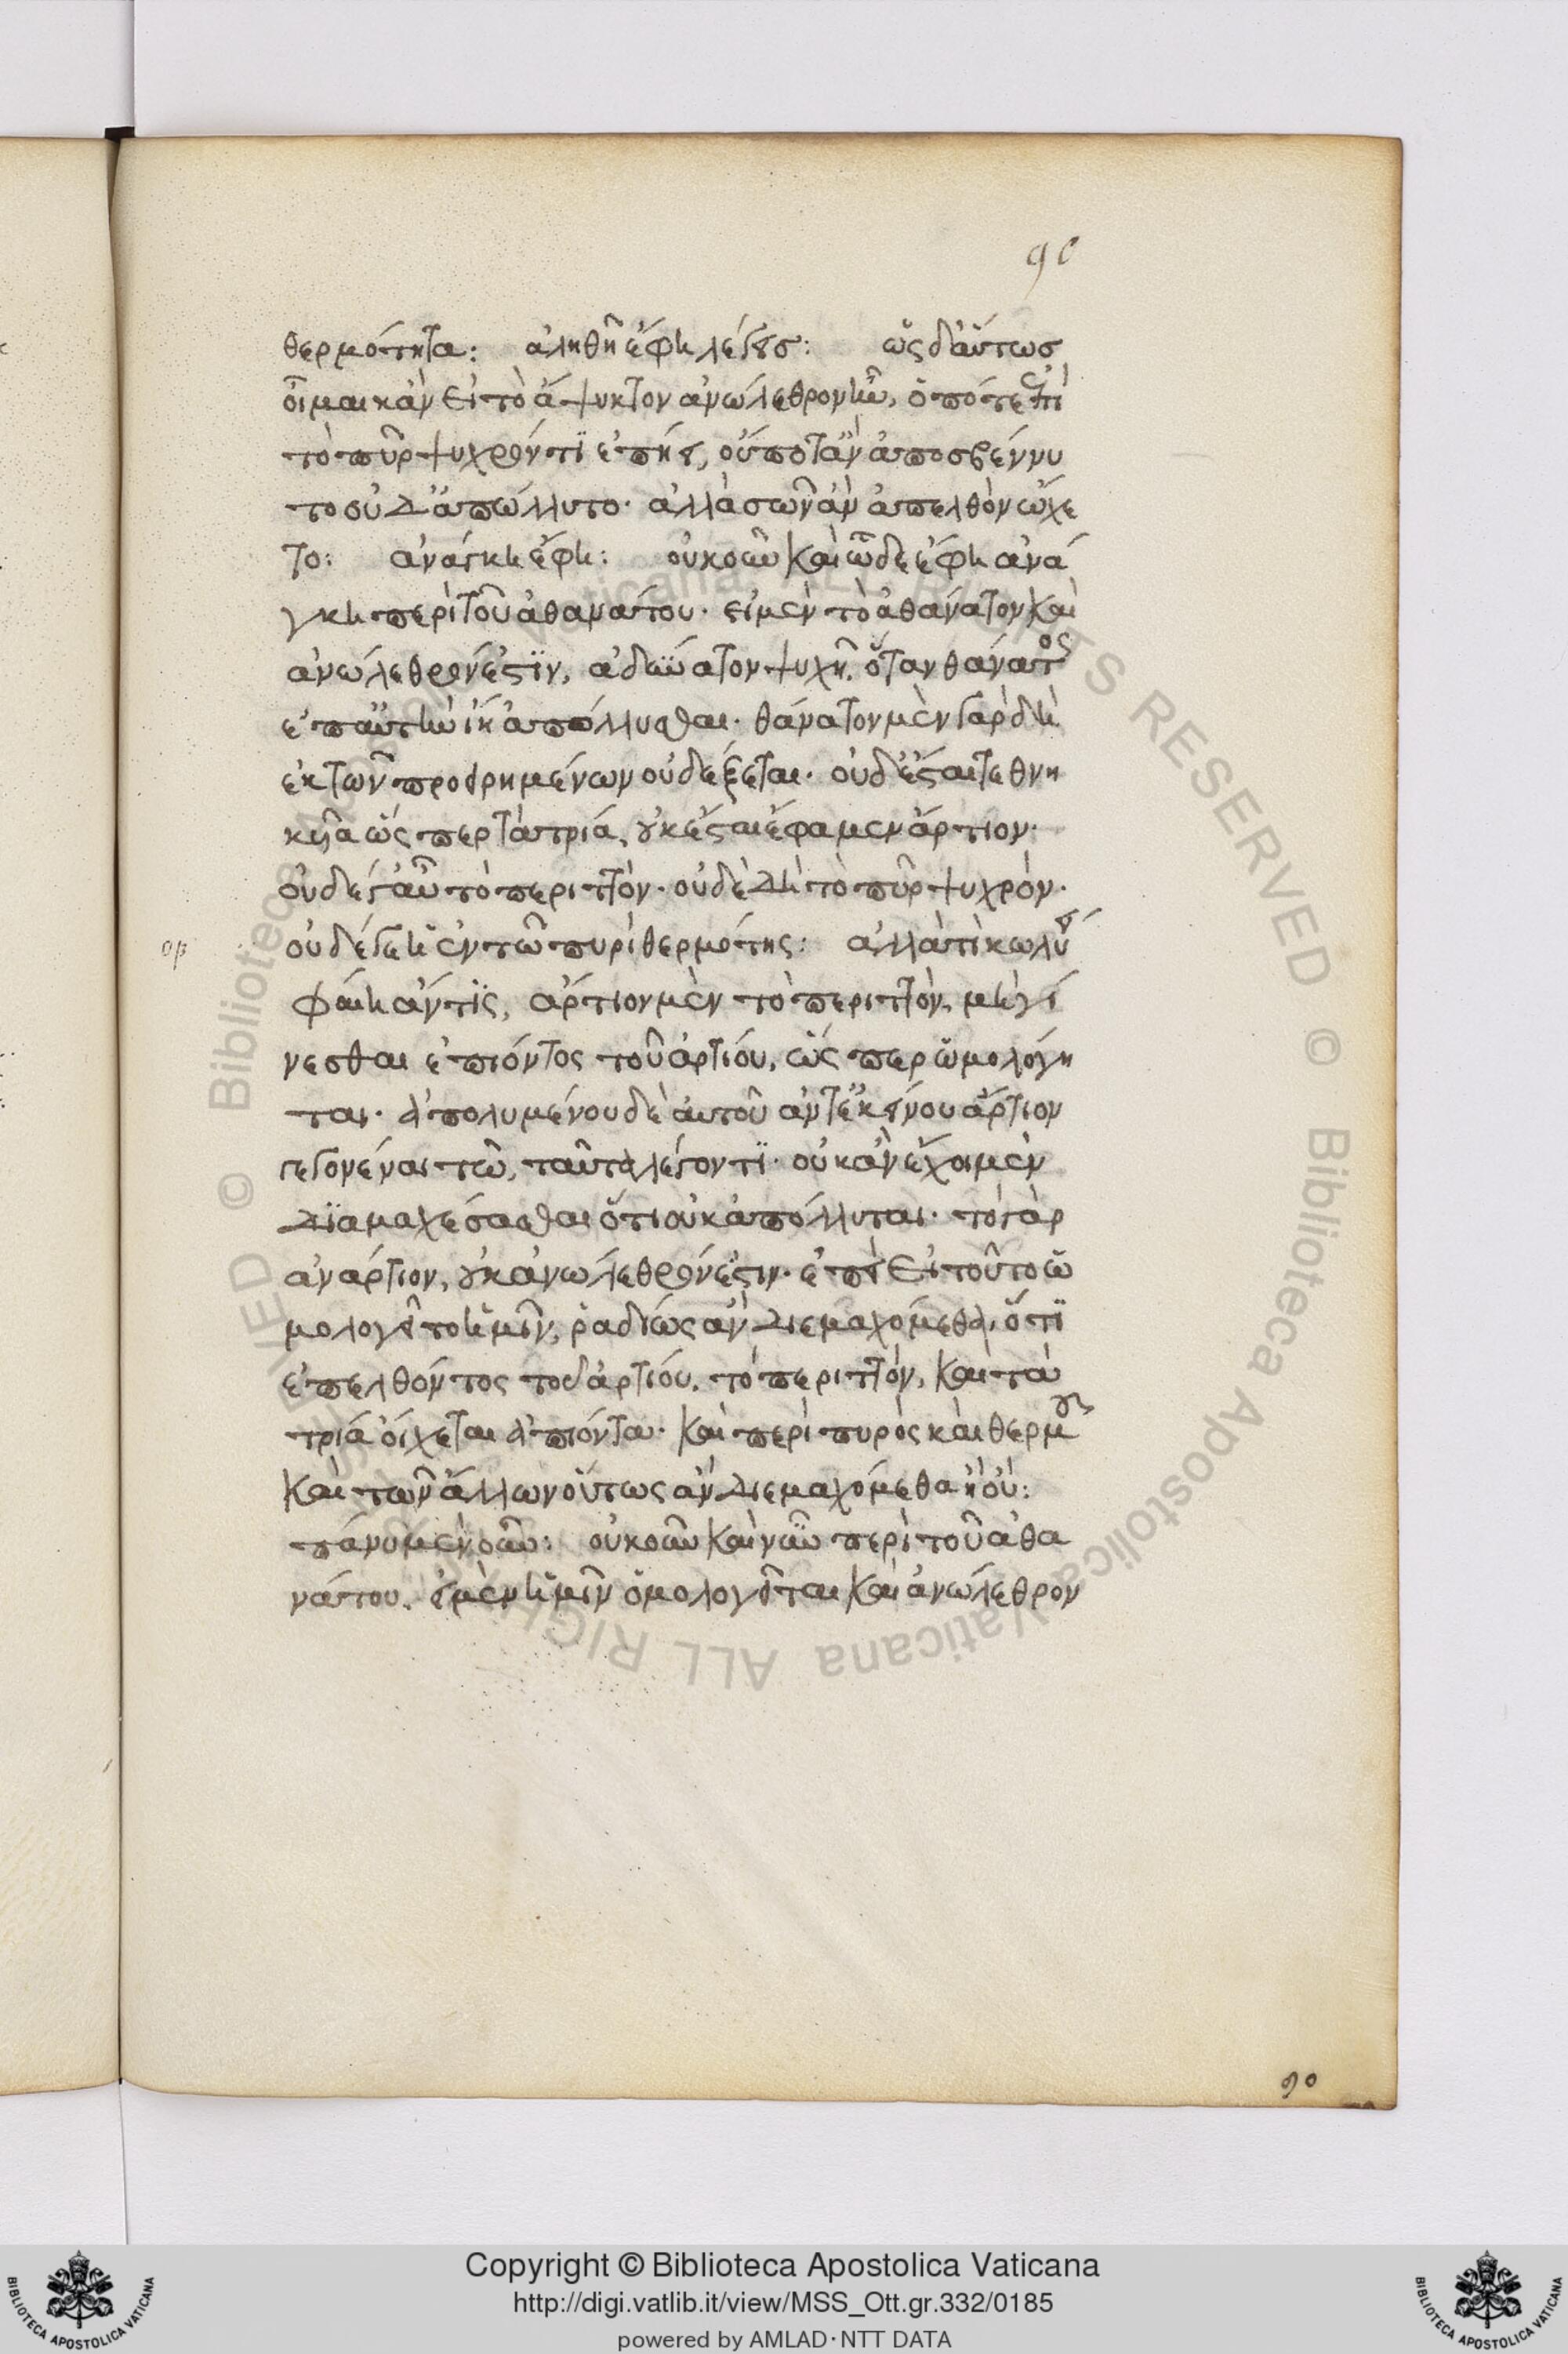 90
θερμότητα: ἀληθῆ ἔφη λέγεις: ὡς δ' αὔτως
οἶμαι κἂν εἰ τὸ ἄψυκτον ἀνώλεθρον ἦν, ὁπότε ἐπὶ
τὸ πῦρ ψυχρόν τι ἐπῄει, οὔποτ' ἂν ἀπεσβέννυ
το οὐδ' ἀπώλλυτο· ἀλλὰ σῶν ἂν ἀπελθὸν ᾤχε
το: ἀνάγκη ἔφη: οὐκοῦν καὶ ὧδε ἔφη ἀνά
γκη περὶ τοῦ ἀθανάτου· εἰ μὲν τὸ ἀθάνατον καὶ
ἀνώλεθρόν ἐστιν, ἀδύνατον ψυχῇ, ὅταν θάνατος
ἐπ' αὐτὴν ἴῃ ἀπόλλυσθαι· θάνατον μὲν γὰρ δὴ
ἐκ τῶν προειρημένων οὐ δέξεται· οὐδ' ἔσται τεθνη
κυῖα ὥσπερ τὰ τρία, οὐκ ἔσται ἔφαμεν ἄρτιον·
οὐδέ γ' αὖ τὸ περιττόν· οὐδὲ δὴ τὸ πῦρ ψυχρόν·
οὐδέ γε ἡ ἐν τῷ πυρὶ θερμότης: ἀλλὰ τί κωλύει
ορ
φαίη ἄν τις, ἄρτιον μὲν τὸ περιττόν, μὴ γί
νεσθαι ἐπιόντος τοῦ ἀρτίου, ὥσπερ ὡμολόγη
ται· ἀπολυμένου δὲ αὐτοῦ ἀντ' ἐκείνου ἄρτιον
γεγονέναι τῷ, ταῦτα λέγοντι· οὐκ ἂν ἔχοιμεν
διαμαχέσασθαι ὅτι οὐκ ἀπόλλυται· τὸ γὰρ
ἀνάρτιον, οὐκ ἀνώλεθρόν ἐστιν· ἐπεὶ εἰ τοῦτο ὡ
μολογεῖτο ἡμῖν, ῥαδίως ἂν διεμαχόμεθα, ὅτι
ἐπελθόντος τοῦ ἀρτίου, τὸ περιττόν, καὶ τὰ
τρία οἴχεται ἀπιόντα· καὶ περὶ πυρὸς καὶ θερμοῦ
καὶ τῶν ἄλλων οὕτως ἂν διεμαχόμεθα ἢ οὔ:
πάνυ μὲν οὖν: οὐκοῦν καὶ νῦν περὶ τοῦ ἀθα
νάτου, εἰ μὲν ἡμῖν ὁμολογεῖται καὶ ἀνώλεθρον
90
© Biblioteca Apostolica Vaticana ALL RIGHTS RESERVED © Biblioteca Apostolica Vaticana ALL RIGHTS RESERVED
Copyright © Biblioteca Apostolica Vaticana
http://digi.vatlib.it/view/MSS_Ott.gr.332/0185
powered by AMLAD·NTT DATA
BIBLIOTECA APOSTOLICA VATICANA
BIBLIOTECA APOSTOLICA VATICANA